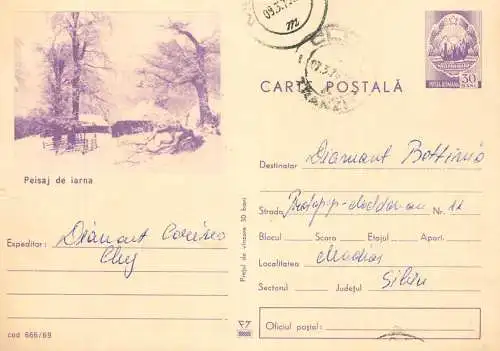 Peisaj de iarna
Expeditor: Diamant
Cluj
cod 666/69
Prețul de vînzare 30 bani
09.3.7
m
CARTE POȘTALĂ
POSTA ROMÂNĂ 30 BANI
Destinatar Diamant
Strada Nr. 11
Blocul Scara Etajul Apart.
Localitatea Mediaș
Sectorul Județul Sibiu
Oficiul poștal: